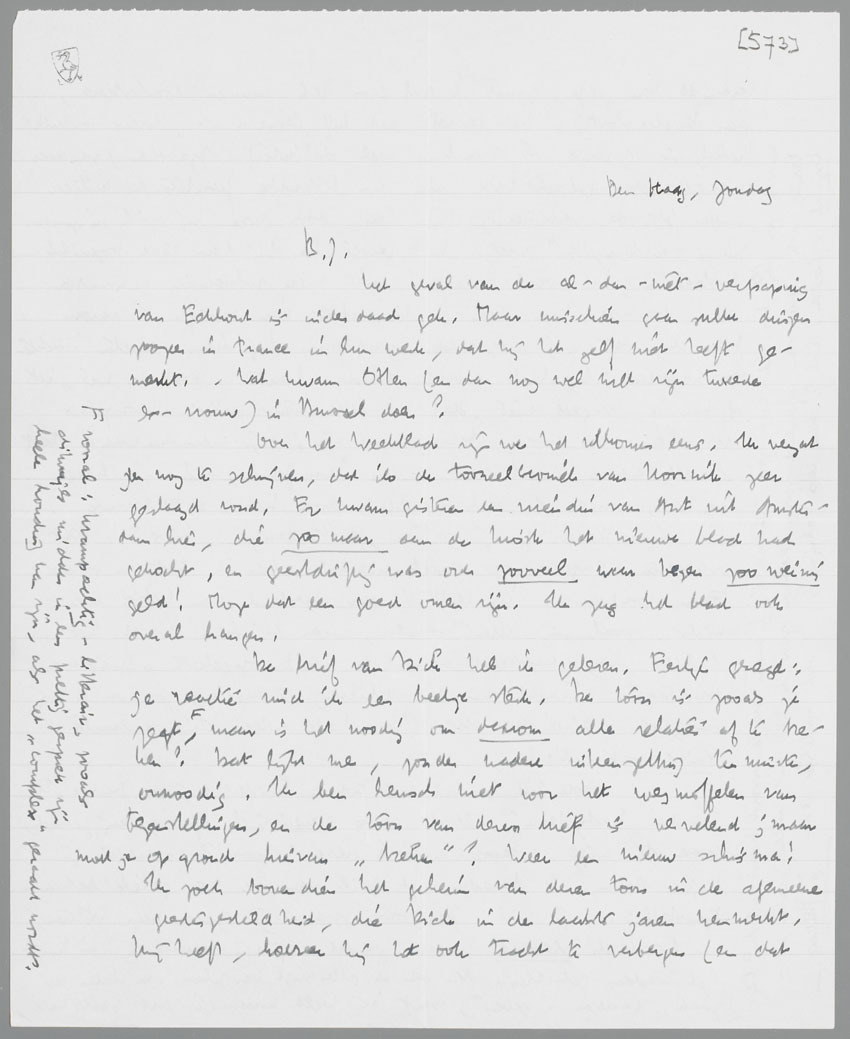 [573]
Den Haag, Zondag
B.J.
het geval van de al-dan-niet-verspringing
van Eeckhout is inderdaad gek. Maar misschien gaan zulke dingen
zoozeer in trance in hun werk, dat hij het zelf niet heeft ge-
merkt. - Wat kwam Otten (en dan nog wel mét zijn tweede
ex-vrouw) in Brussel doen?
Over het weekblad zijn we het volkomen eens. Ik vergat
je nog te schrijven, dat ik de tooneelkroniek van Hoornik zeer
geslaagd vond. Er kwam gisteren een vriendin van Ant uit Amster-
dam hier, die zoo maar aan de kiosk het nieuwe blad had
gekocht, en geestdriftig was over zooveel waar tegen zoo weinig
geld! Moge dat een goed omen zijn. Ik zag het blad ook
overal hangen.
De brief van Kick heb ik gelezen. Eerlijk gezegd:
je reactie vind ik een beetje sterk. De toon is zooals je
zegt, maar is het noodig om daarom alle relaties af te bre-
ken? Dat lijkt me, zonder nadere uiteenzetting tenminste,
onnoodig. Ik ben heusch niet voor het wegmoffelen van
tegenstellingen, en de toon van dezen brief is vervelend; maar
moet je op grond hiervan „breken"? Weer een nieuw schisma!
Ik zoek bovendien het geheim van dezen toon in de algemeene
geprikkeldheid, die Kick in de laatste jaren kenmerkt.
Hij heeft, hoezeer hij het ook tracht te verbergen (en dat
vooral: krampachtig-litterair, zooals
dikwijls midden in een prettig gesprek zijn
heele houding kan zijn, als het „complex" geraakt wordt.